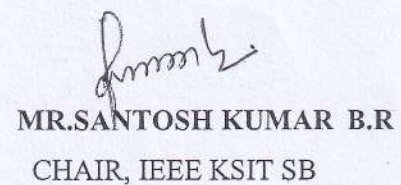 MR.SANTOSH KUMAR B.R
CHAIR, IEEE KSIT SB